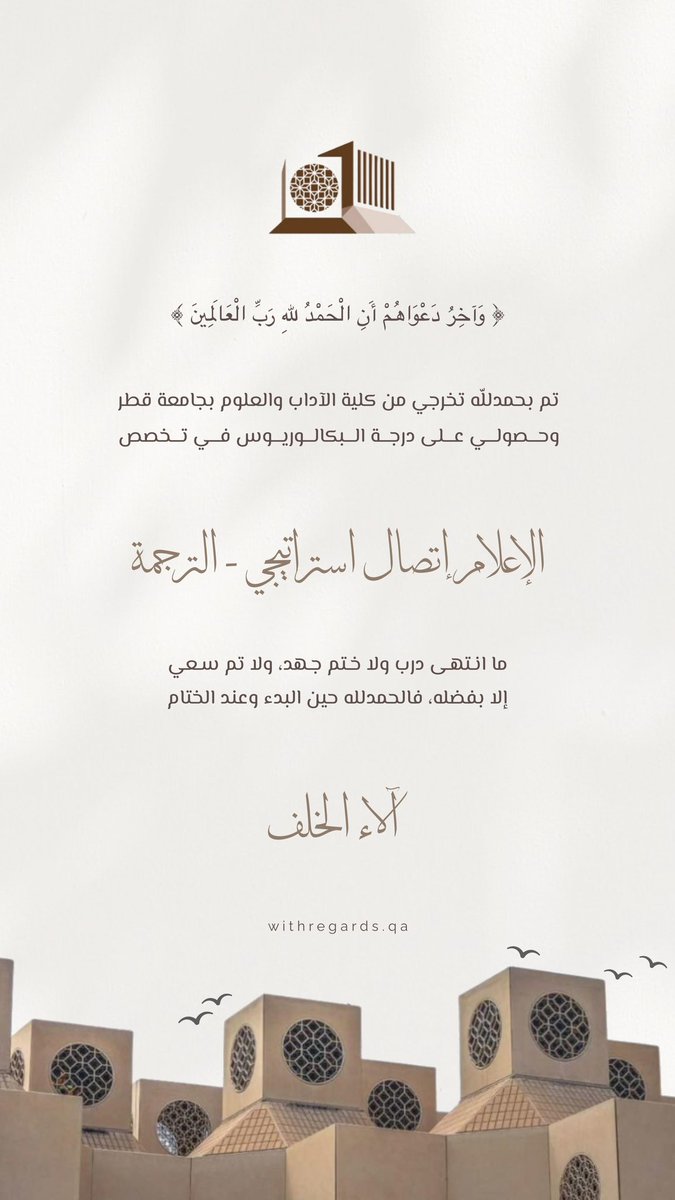 ﴿ وَآخِرُ دَعْوَاهُمْ أَنِ الْحَمْدُ لِلَّهِ رَبِّ الْعَالَمِينَ ﴾
تم بحمدللّه تخرجي من كلية الآداب والعلوم بجامعة قطر
وحـصـولـي عـلـى درجـة الـبـكـالـوريـوس فـي تـخـصـص
الإعلام إتصال استراتيجي - الترجمة
ما انتهى درب ولا ختم جهد، ولا تم سعي
إلا بفضله، فالحمدلله حين البدء وعند الختام
آلاء الخلف
withregards.qa